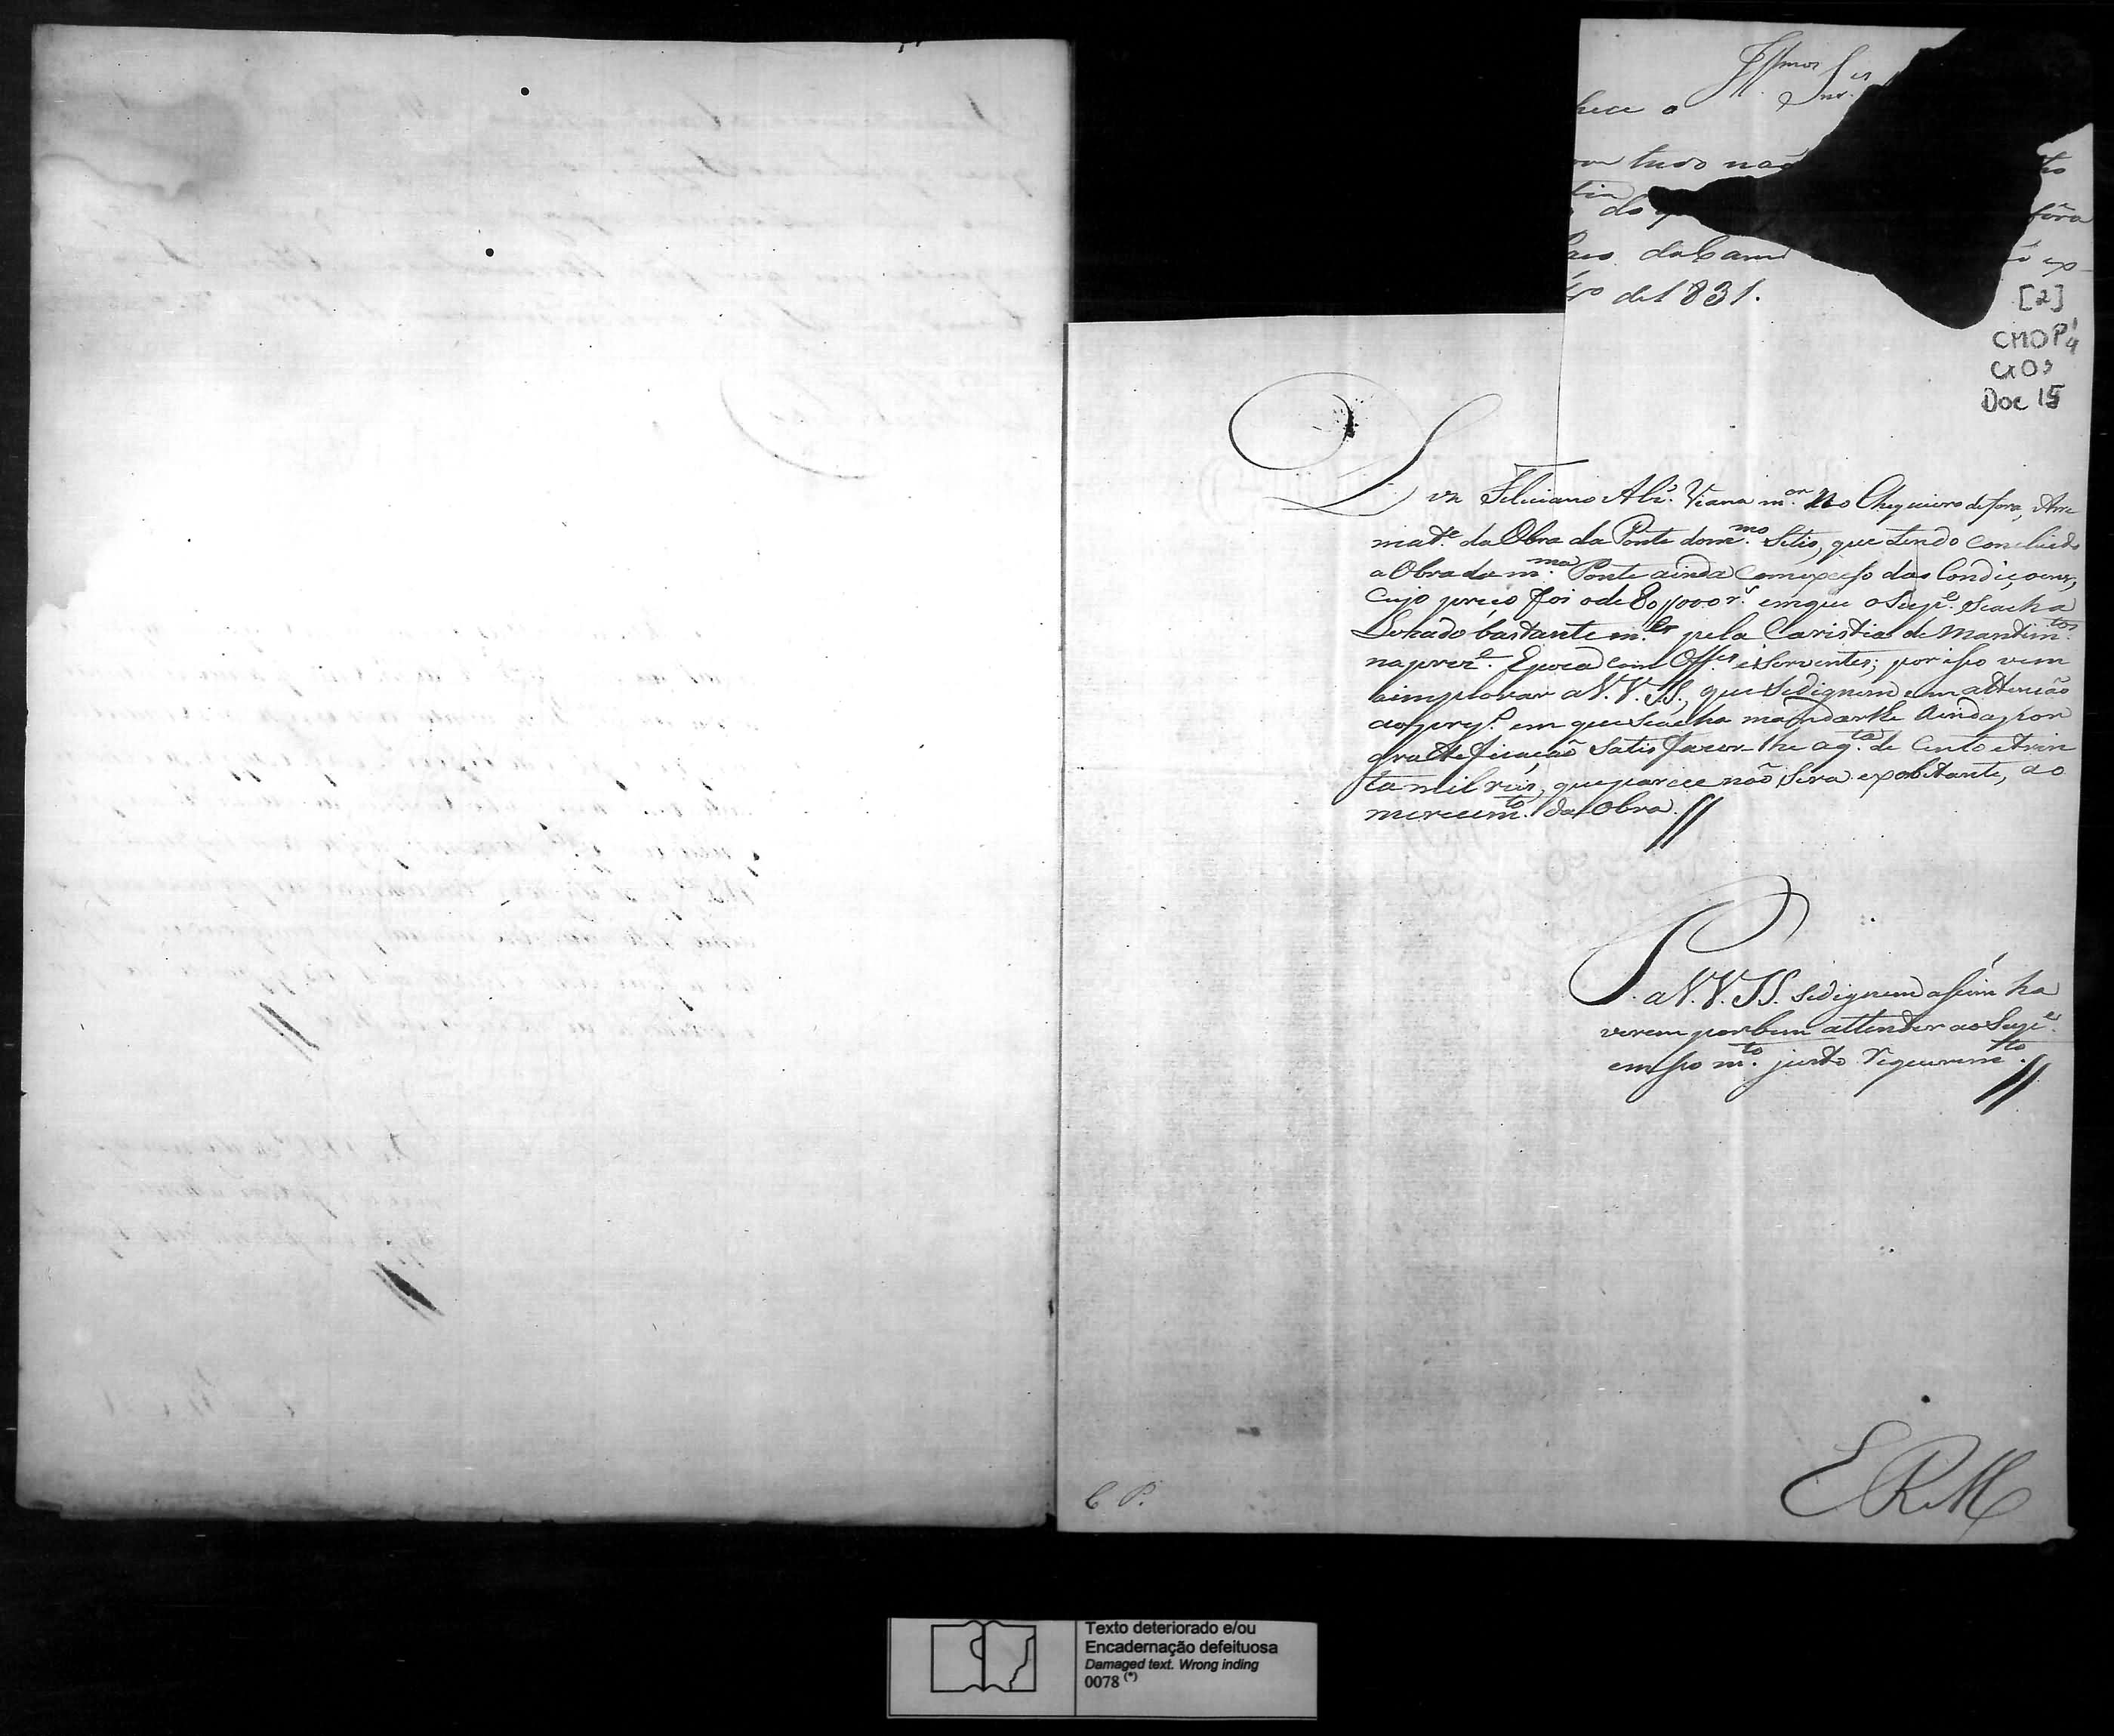 Illmos Snr.es
hece o
tudo não
do
fóra
da Cam
de 1831.
[2]
CMOP
CX 03
Doc 15
Diz Feliciano Alz. Viana m.or no Chiqueiro de fora, Arre
mat.e da Obra da Ponte do m.mo Sitio, que tendo concluido
a Obra da m.ma Ponte ainda com excesso das Condiçoens,
Cujo preço foi o de 80$000 r.s em que o Sup.e Se acha
Lezado bastante m.te pela Caristia de Mantim.tos
na prez.e Epoca com Off.es e Serventes; por isso vem
a implorar a V.V. S.S., que Se dignem em attenção
ao prej.o em que Se acha mandar lhe ainda por
gratteficação Satisfazer lhe a q.ta de Cento e trin
ta mil reis, que parece não Sera exobitante, ao
merecim.to da Obra.//
P. a V.V. S.S. Se dignem assim ha
verem por bem attender ao Sup.e
em seo m.to justo requerim.to //
E R M
C P.
Texto deteriorado e/ou
Encadernação defeituosa
Damaged text. Wrong inding
0078 (*)